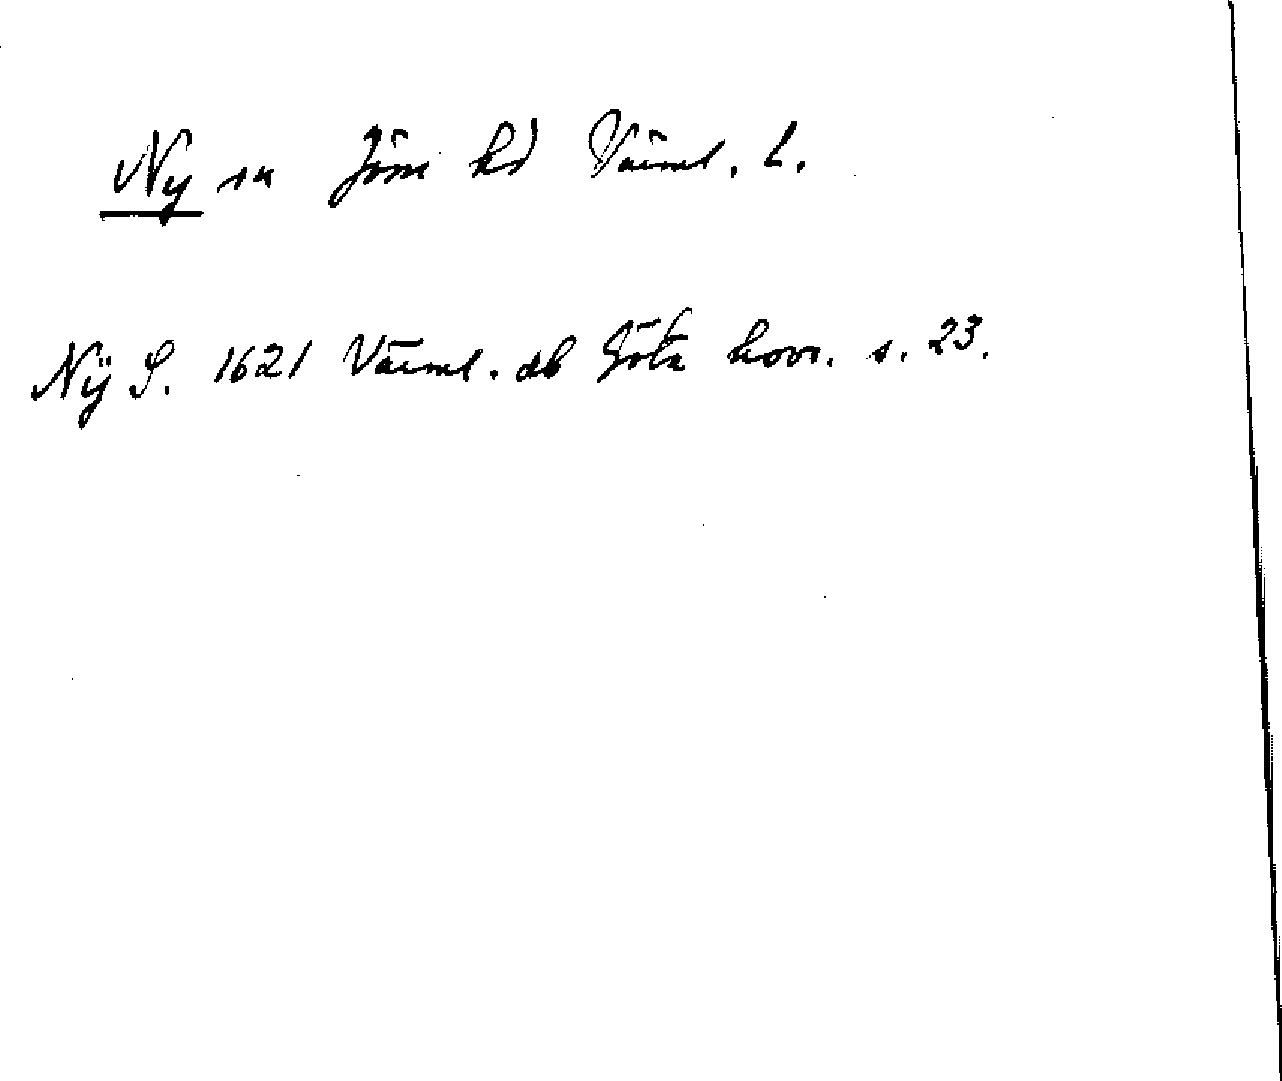 Ny sn Jösse hd Värml. L.
Nÿ S. 1621 Värml. db Göta hovr. s. 23.